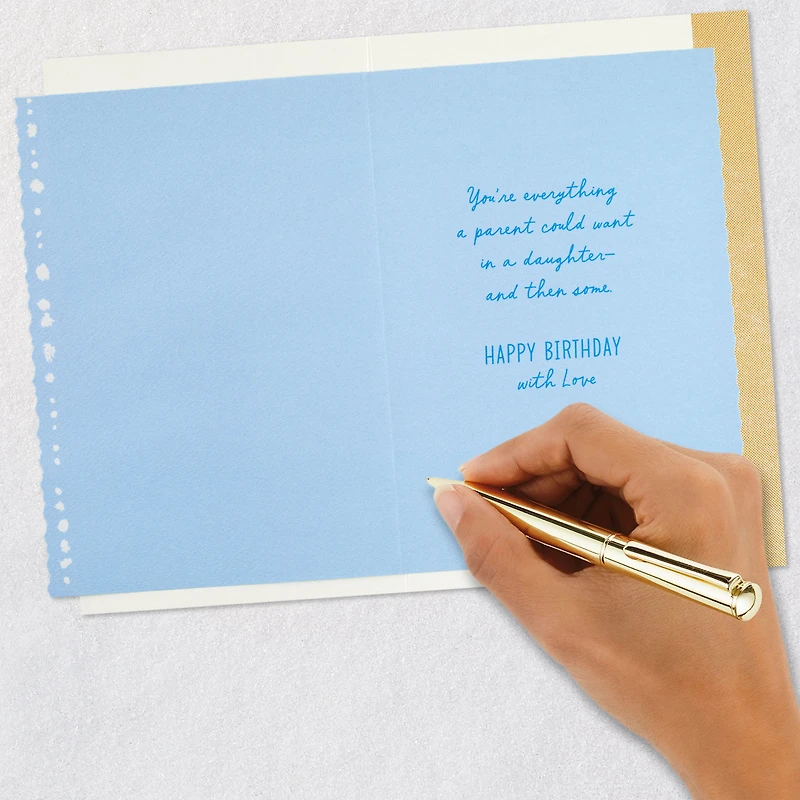 You're everything
a parent could want
in a daughter—
and then some.
HAPPY BIRTHDAY
with Love